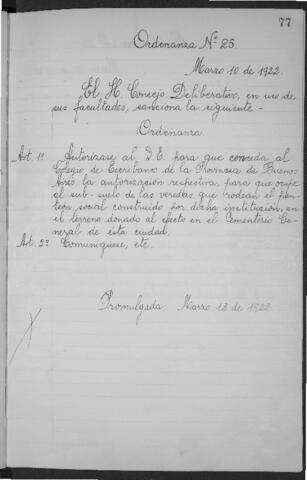 77
Ordenanza Nº 25.
Marzo 10 de 1922.
El H. Concejo Deliberativo, en uso de
sus facultades, sanciona la siguiente -
Ordenanza.
Art. 1º Autorízase al D.E. para que conceda al
Colegio de Escribanos de la Provincia de Buenos
Aires, la autorización respectiva, para que ocupe
el sub-suelo de las veredas que rodean el pan-
teon social construido por dicha institución, en
el terreno donado al efecto en el Cementerio Ge-
neral de esta ciudad.
Art. 2º Comuníquese, etc.
Promulgada Marzo 13 de 1922.